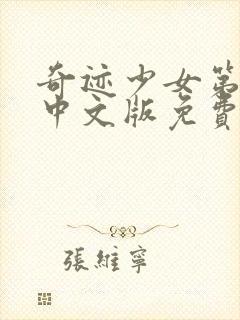 奇迹少女第
中文版免費
張維寧